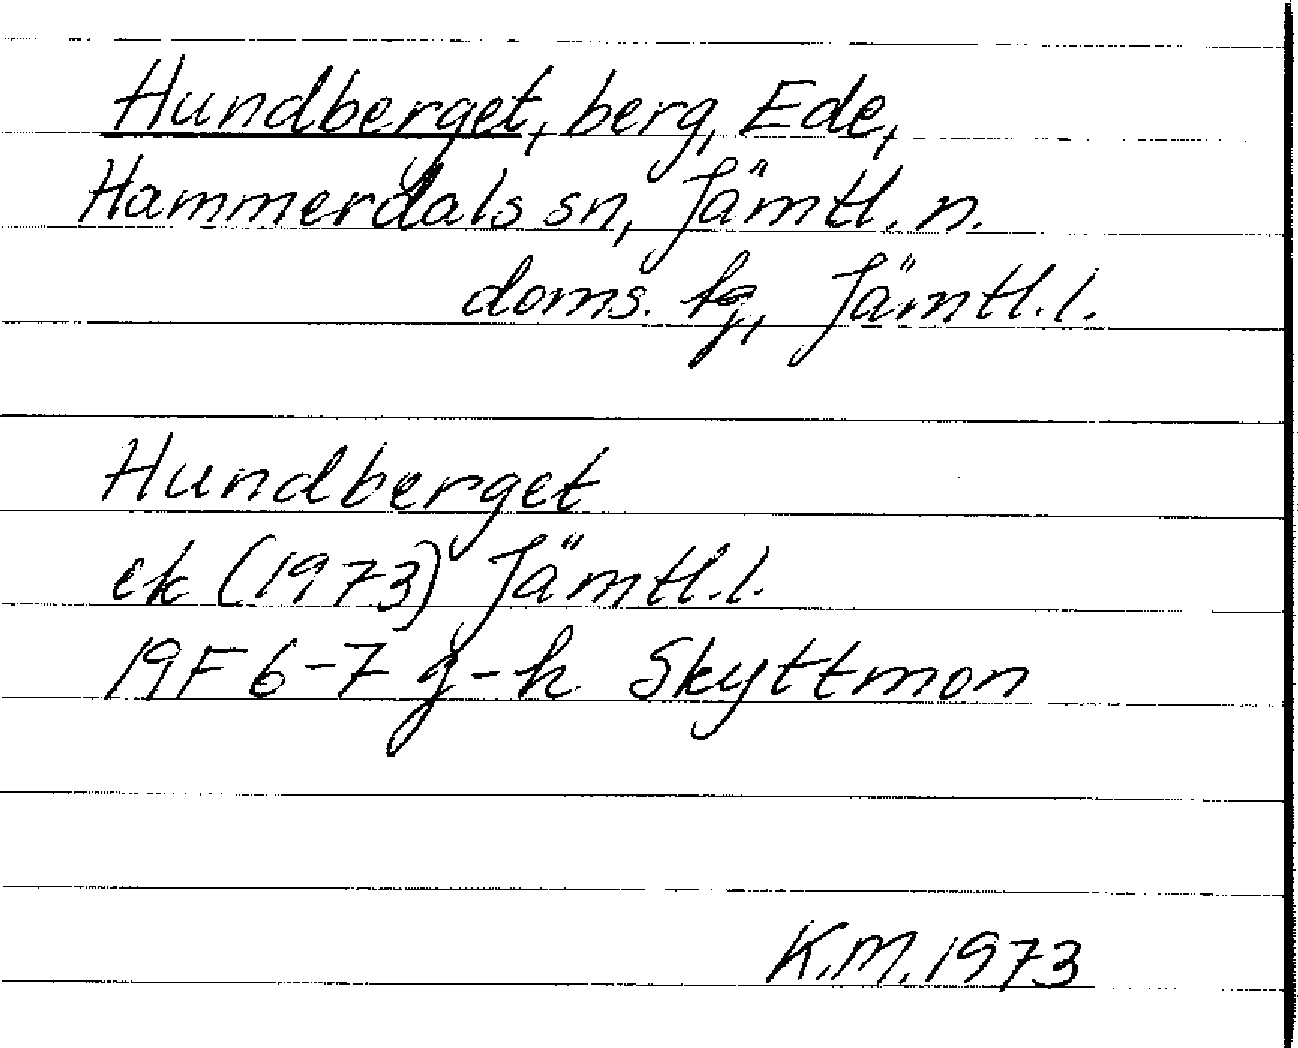 Hundberget, berg, Ede,
Hammerdals sn, Jämtl. n.
doms. tg, Jämtl. l.
Hundberget
ek (1973) Jämtl. l.
19F 6-7 g-h Skyttmon
K.M. 1973